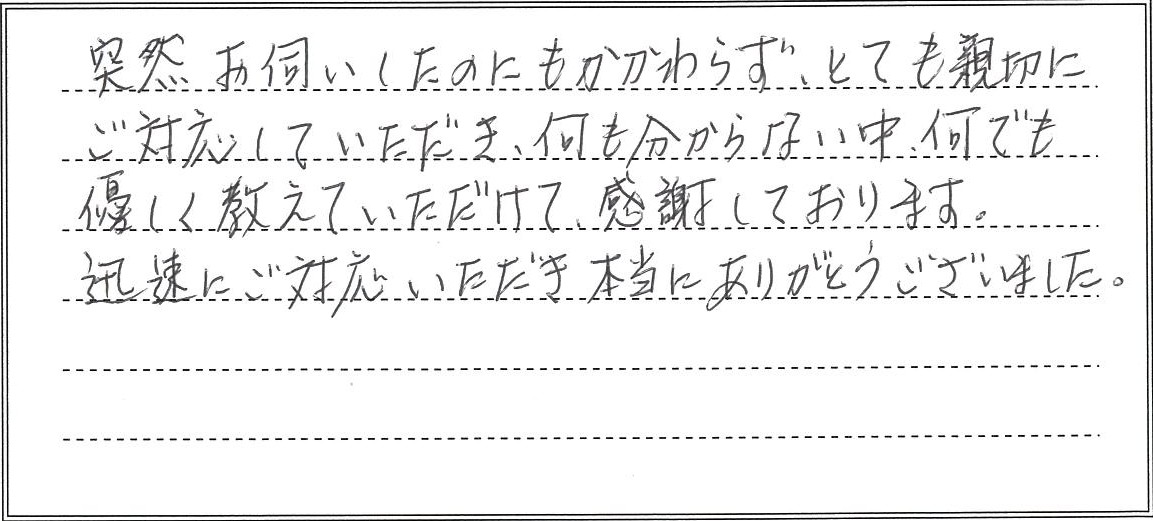 突然お伺いしたのにもかかわらず、とても親切に
ご対応していただき、何も分からない中、何でも
優しく教えていただけて、感謝しております。
迅速にご対応いただき本当にありがとうございました。